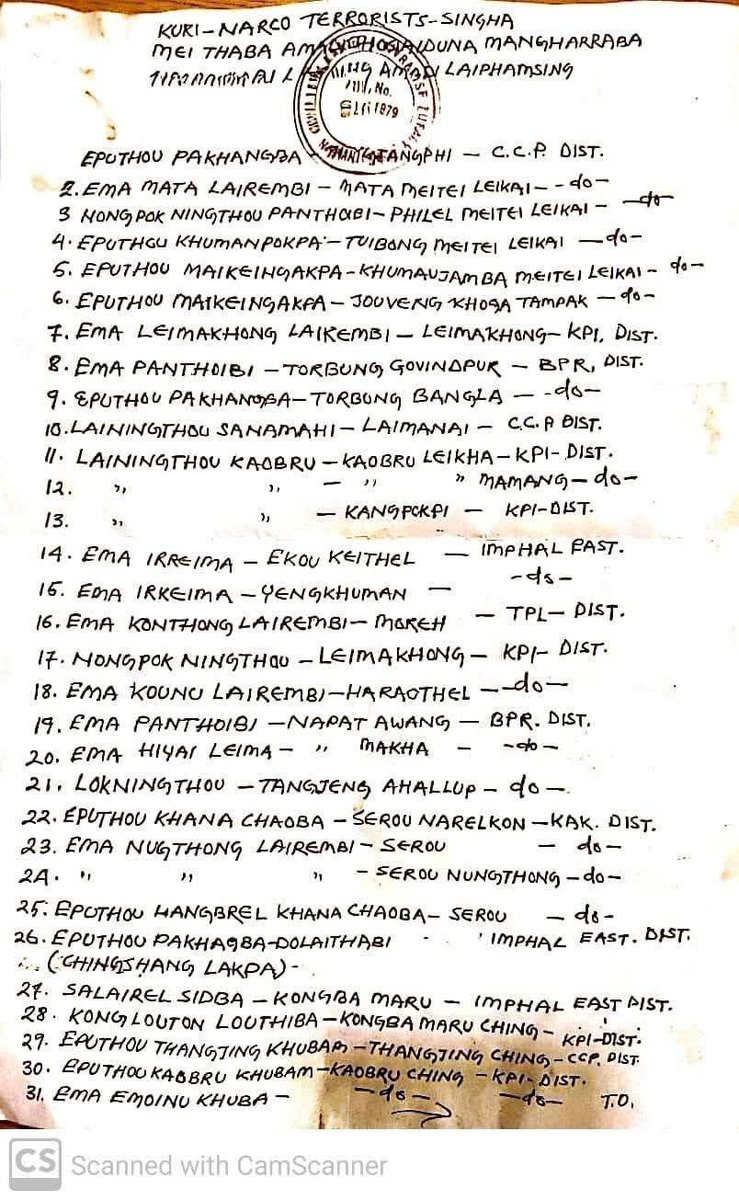 KUKI-NARCO TERRORISTS-SINGHA
MEI THABA MANGHARRABA
LAIPHAMSING
EPUTHOU PAKHANGBA - TANGPHI - C.C.P. DIST.
2. EMA MATA LAIREMBI - MATA MEITEI LEIKAI - - do -
3 NONGPOK NINGTHOU PANTHOIBI - PHILEL MEITEI LEIKAI - - do -
4. EPUTHOU KHUMANPOKPA - TUIBONG MEITEI LEIKAI - do -
5. EPUTHOU MAIKEINGAKPA - KHUMAUJAMBA MEITEI LEIKAI - do -
6. EPUTHOU MAIKEINGAKPA - JOUVENG KHOGA TAMPAK - do -
7. EMA LEIMAKHONG LAIREMBI - LEIMAKHONG - KPI, DIST.
8. EMA PANTHOIBI - TORBUNG GOVINDPUR - BPR, DIST.
9. EPUTHOU PAKHANGBA - TORBUNG BANGLA - - do -
10. LAININGTHOU SANAMAHI - LAIMANAI - C.C.P DIST.
11. LAININGTHOU KAOBRU - KAOBRU LEIKHA - KPI - DIST.
12. " " - " " MAMANG - do -
13. " " - KANGPOKPI - KPI - DIST.
14. EMA IRREIMA - EKOU KEITHEL - IMPHAL EAST.
15. EMA IRREIMA - YENGKHUMAN - - do -
16. EMA KONTHONG LAIREMBI - MOREH - TPL - DIST.
17. NONGPOK NINGTHOU - LEIMAKHONG - KPI - DIST.
18. EMA KOUNU LAIREMBI - HARAOTHEL - - do -
19. EMA PANTHOIBI - NAPAT AWANG - BPR. DIST.
20. EMA HIYAI LEIMA - " MAKHA - - do -
21. LOKNINGTHOU - TANGJENG AHALLUP - do -
22. EPUTHOU KHANA CHAOBA - SEROU NARELKON - KAK. DIST.
23. EMA NUGTHONG LAIREMBI - SEROU - do -
24. " " " - SEROU NUNGTHONG - do -
25. EPUTHOU WANGBREL KHANA CHAOBA - SEROU - do -
26. EPUTHOU PAKHAGBA - DOLAITHABI IMPHAL EAST. DIST.
(CHINGSHANG LAKPA) -
27. SALAIREL SIDBA - KONGBA MARU - IMPHAL EAST DIST.
28. KONG LOUTON LOUTHIBA - KONGBA MARU CHING - KPI - DIST.
29. EPUTHOU THANGJING KHUBAM - THANGJING CHING - CCP. DIST.
30. EPUTHOU KAOBRU KHUBAM - KAOBRU CHING - KPI - DIST.
31. EMA EMOINU KHUBA - - do - - do - T.O.
CS Scanned with CamScanner